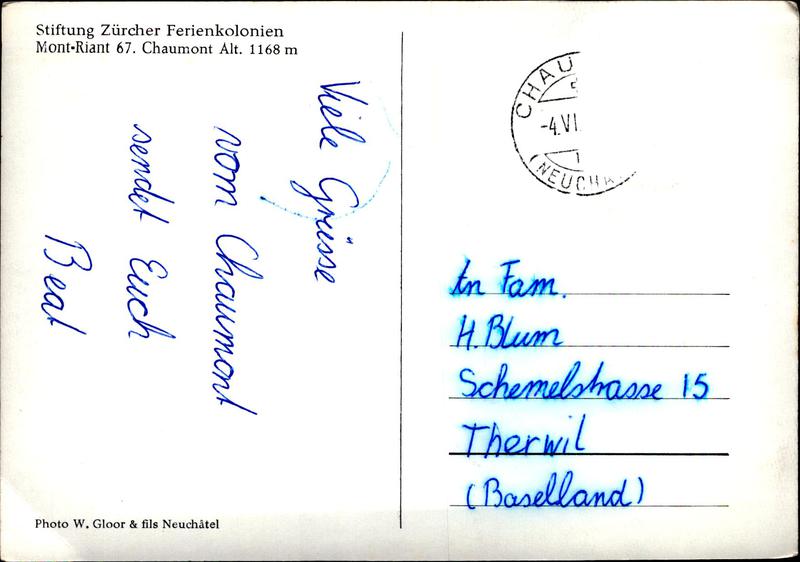 Stiftung Zürcher Ferienkolonien
Mont-Riant 67. Chaumont Alt. 1168 m
Viele Grüsse
vom Chaumont
sendet Euch
Beat
Photo W. Gloor & fils Neuchâtel
CHAU
-4.VI
(NEUCH
An Fam.
H. Blum
Schemelstrasse 15
Therwil
(Baselland)